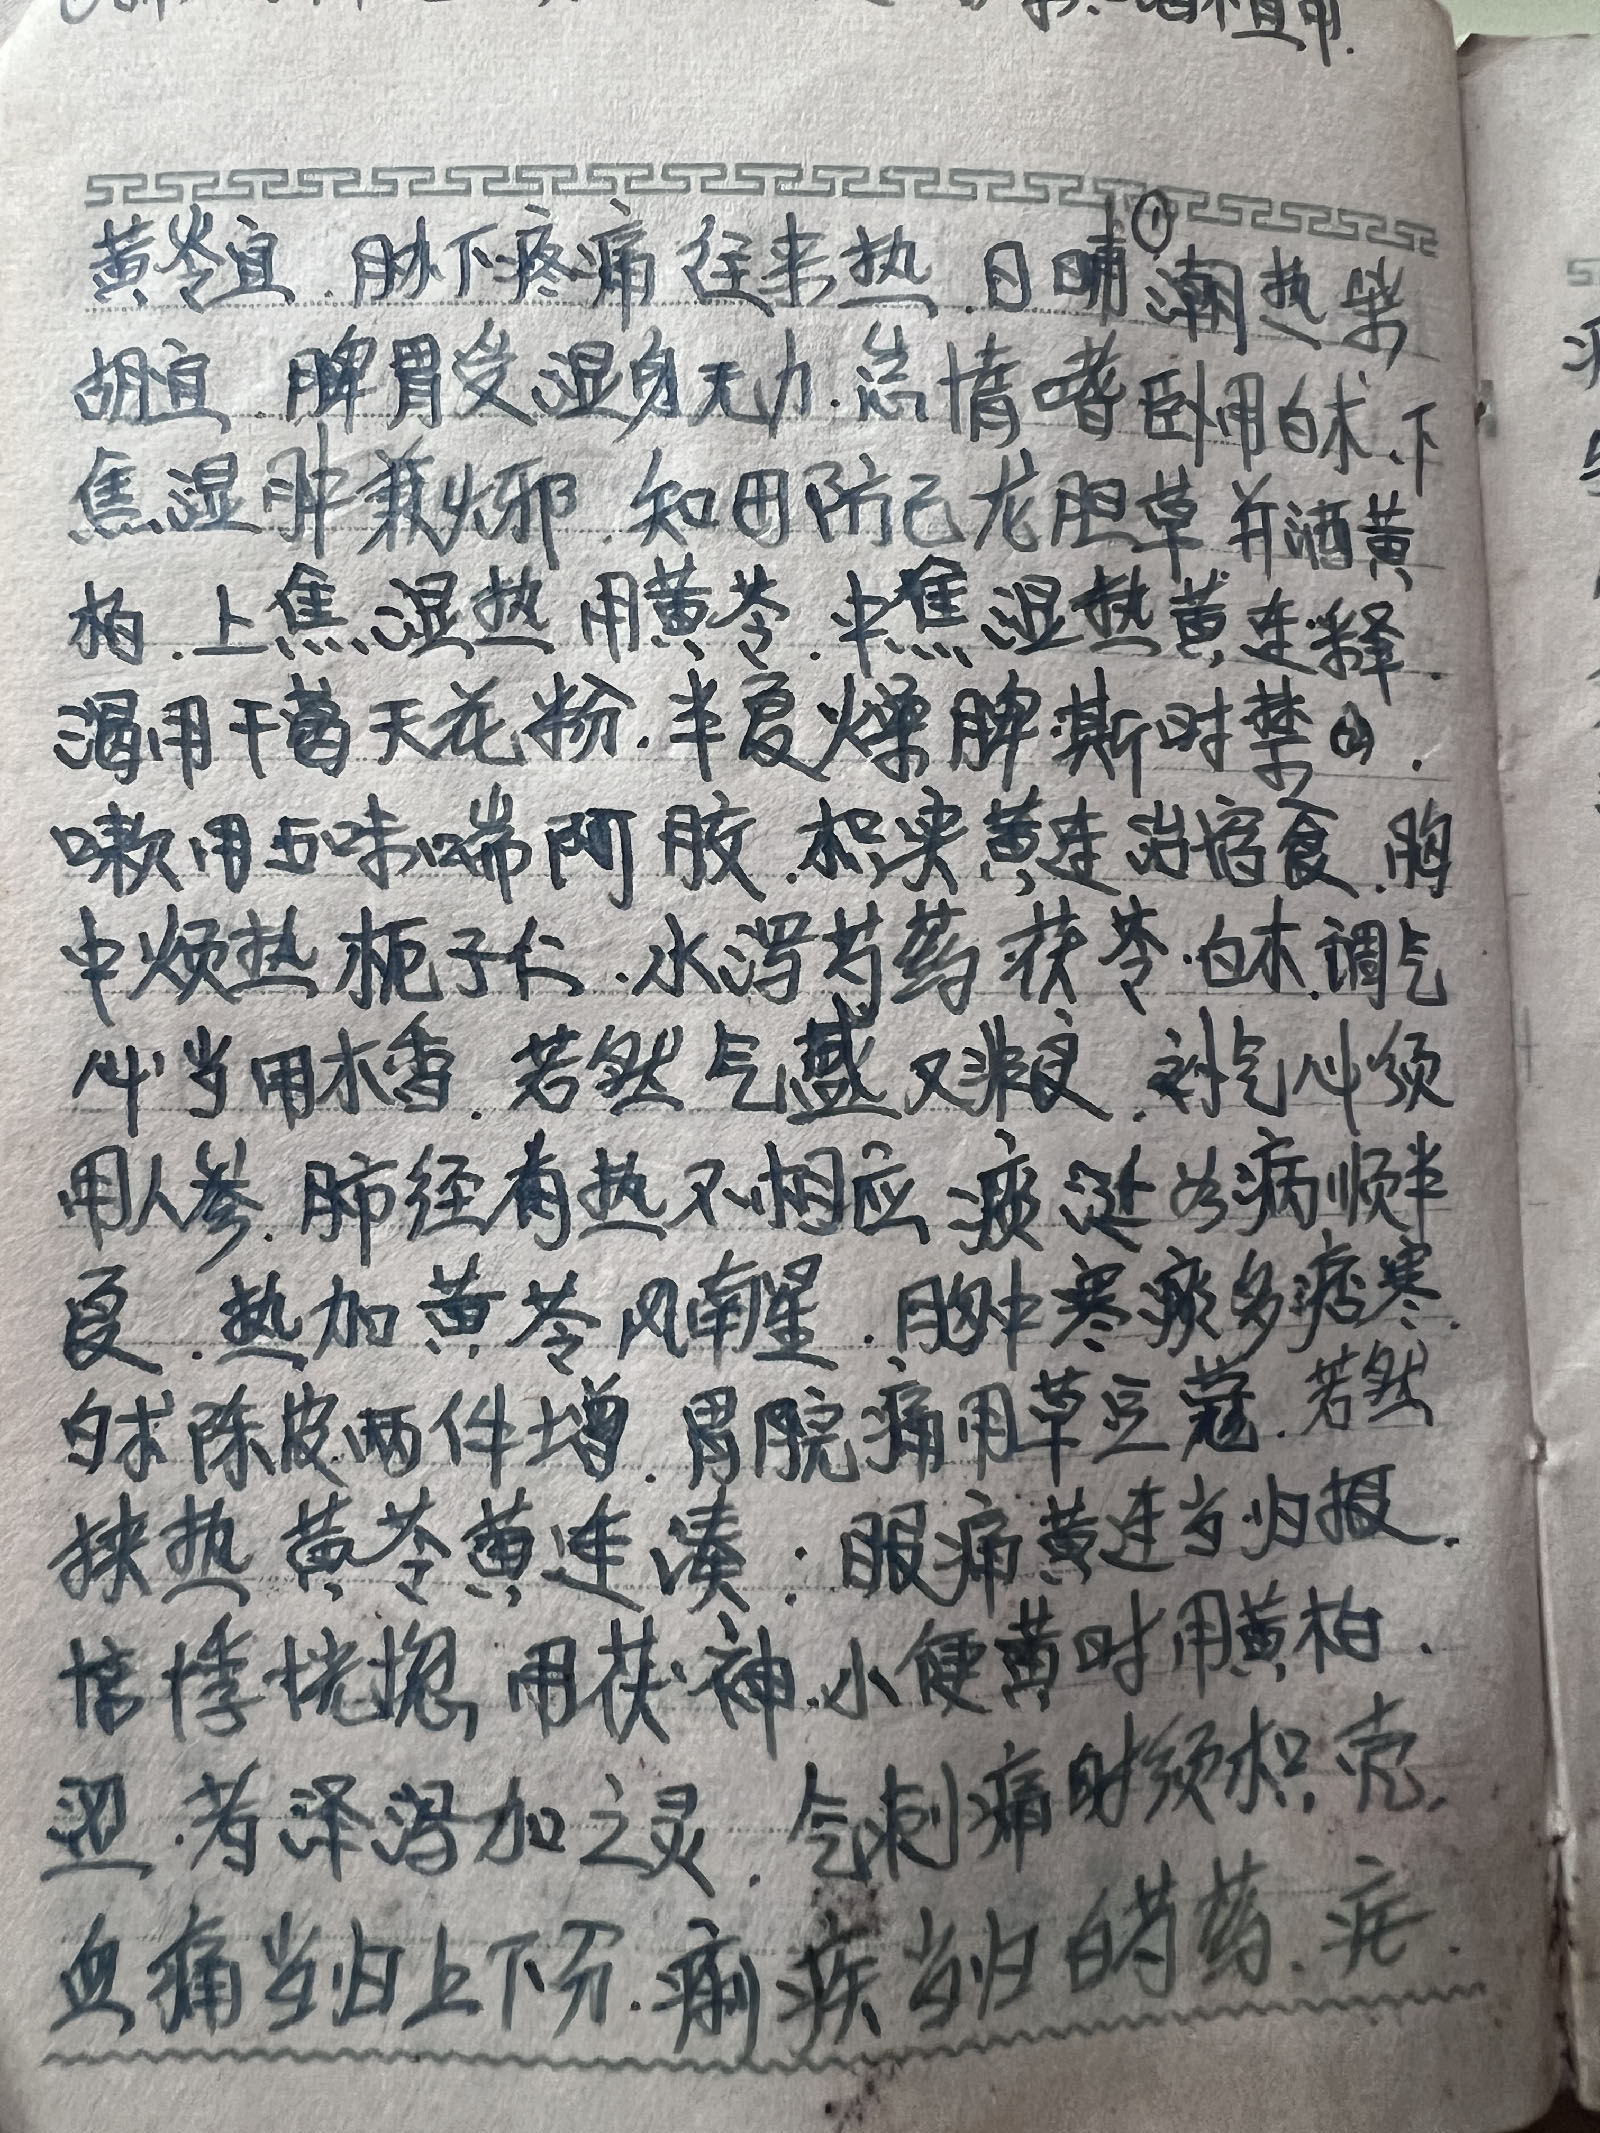 黄岑宜.胁下疼痛往来热.日晡①潮热柴
胡宜.脾胃受湿身无力.怠惰嗜卧用白术.下
焦湿肿兼火邪.知田防己龙胆草并酒黄
柏.上焦湿热用黄苓.中焦湿热黄连释.
渴用干葛天花粉.半夏燥脾斯时禁②.
嗽用五味喘阿胶.枳实黄连治宿食.胸
中烦热栀子仁.水泻芍药茯苓.白术.调气
必当用木香.若然气盛又非良.补气必须
用人参.肺经有热不相应.痰涎为病顺半
夏.热加黄苓风南星.胸中寒痰多痞寒.
白术陈皮两件增.胃脘痛用草豆蔻.若然
挟热黄苓黄连凑.眼痛黄连当归报.
惊悸恍惚用茯神.小便黄时用黄柏.
涩.若泽泻加之灵.气刺痛时须枳壳.
血痛当归上下分.痢疾当归白芍药.疟.